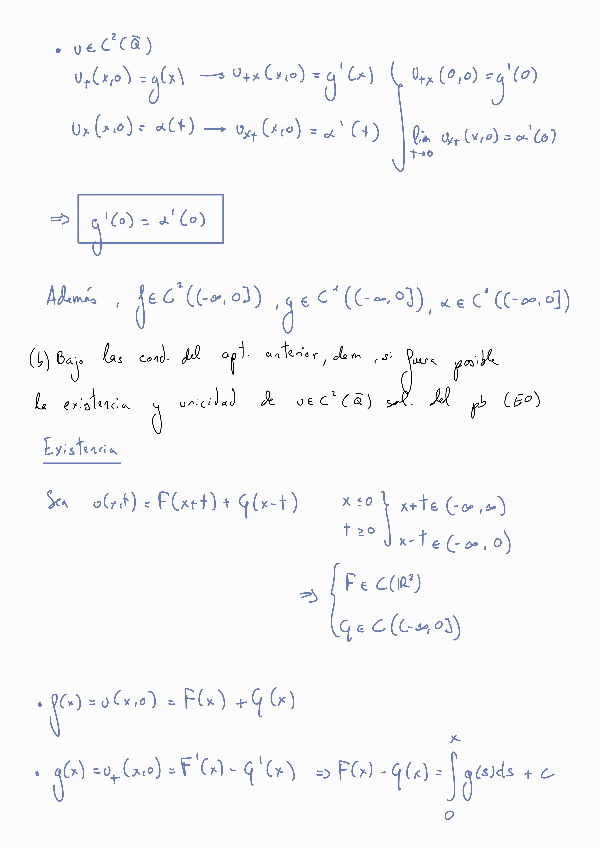 • u ∈ C²(Q̄)
u_t(x,0) = g(x) ⟶ u_tx(x,0) = g'(x) { u_tx(0,0) = g'(0)
u_x(x,0) = α(t) ⟶ u_xt(x,0) = α'(t) lim_{t→0} u_xt(x,0) = α'(0)
⇒ g'(0) = α'(0)
Además, f ∈ C²((-∞,0]), g ∈ C¹((-∞,0]), α ∈ C¹((-∞,0])
(b) Bajo las cond. del apt. anterior, dem, si fuera posible
la existencia y unicidad de u ∈ C²(Q̄) sol. del pb (E0)
Existencia
Sea u(x,t) = F(x+t) + G(x-t) x ≤ 0 } x+t ∈ (-∞,∞)
t ≥ 0 x-t ∈ (-∞,0)
⇒ { F ∈ C(ℝ²)
G ∈ C((-∞,0])
• f(x) = u(x,0) = F(x) + G(x)
• g(x) = u_t(x,0) = F'(x) - G'(x) ⇒ F(x) - G(x) = ∫₀ˣ g(s)ds + c